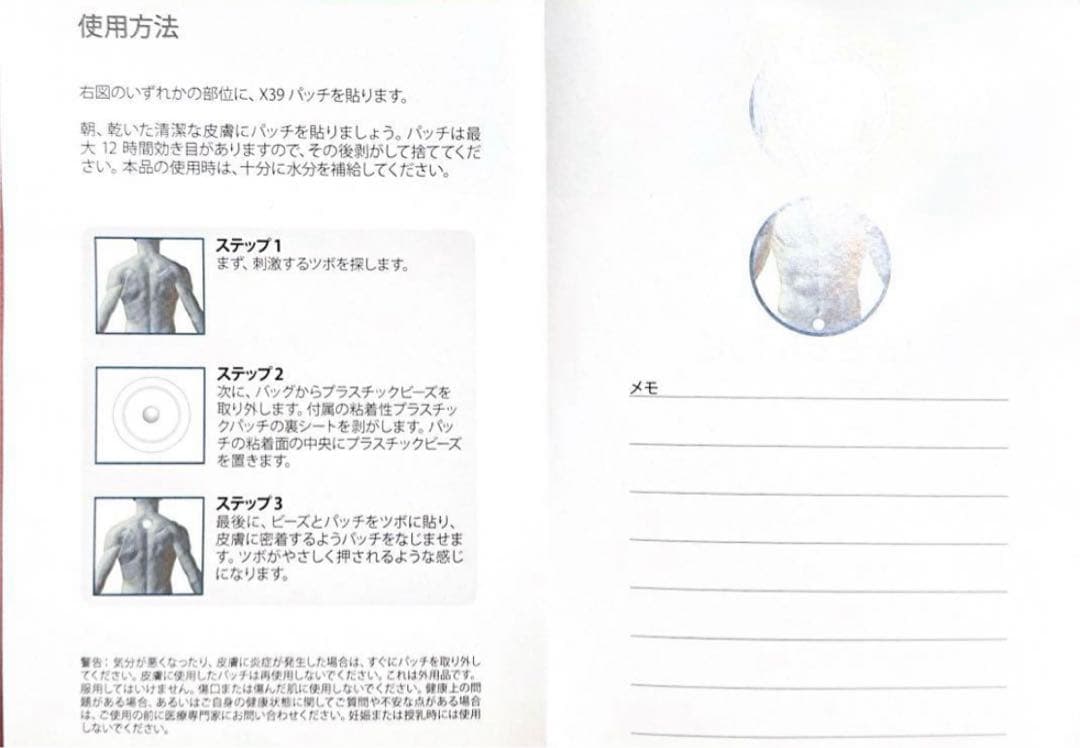 使用方法
右図のいずれかの部位に、X39 パッチを貼ります。
朝、乾いた清潔な皮膚にパッチを貼りましょう。パッチは最
大 12 時間効き目がありますので、その後剥がして捨ててくだ
さい。本品の使用時は、十分に水分を補給してください。
ステップ1
まず、刺激するツボを探します。
ステップ2
次に、バッグからプラスチックビーズを
取り外します。付属の粘着性プラスチッ
クパッチの裏シートを剥がします。パッ
チの粘着面の中央にプラスチックビーズ
を置きます。
ステップ3
最後に、ビーズとパッチをツボに貼り、
皮膚に密着するようパッチをなじませま
す。ツボがやさしく押されるような感じ
になります。
警告：気分が悪くなったり、皮膚に炎症が発生した場合は、すぐにパッチを取り外し
てください。皮膚に使用したパッチは再使用しないでください。これは外用品です。
服用してはいけません。傷口または傷んだ肌に使用しないでください。健康上の問
題がある場合、あるいはご自身の健康状態に関してご質問や不安な点がある場合
は、ご使用の前に医療専門家にお問い合わせください。妊娠または授乳時には使用
しないでください。
メモ